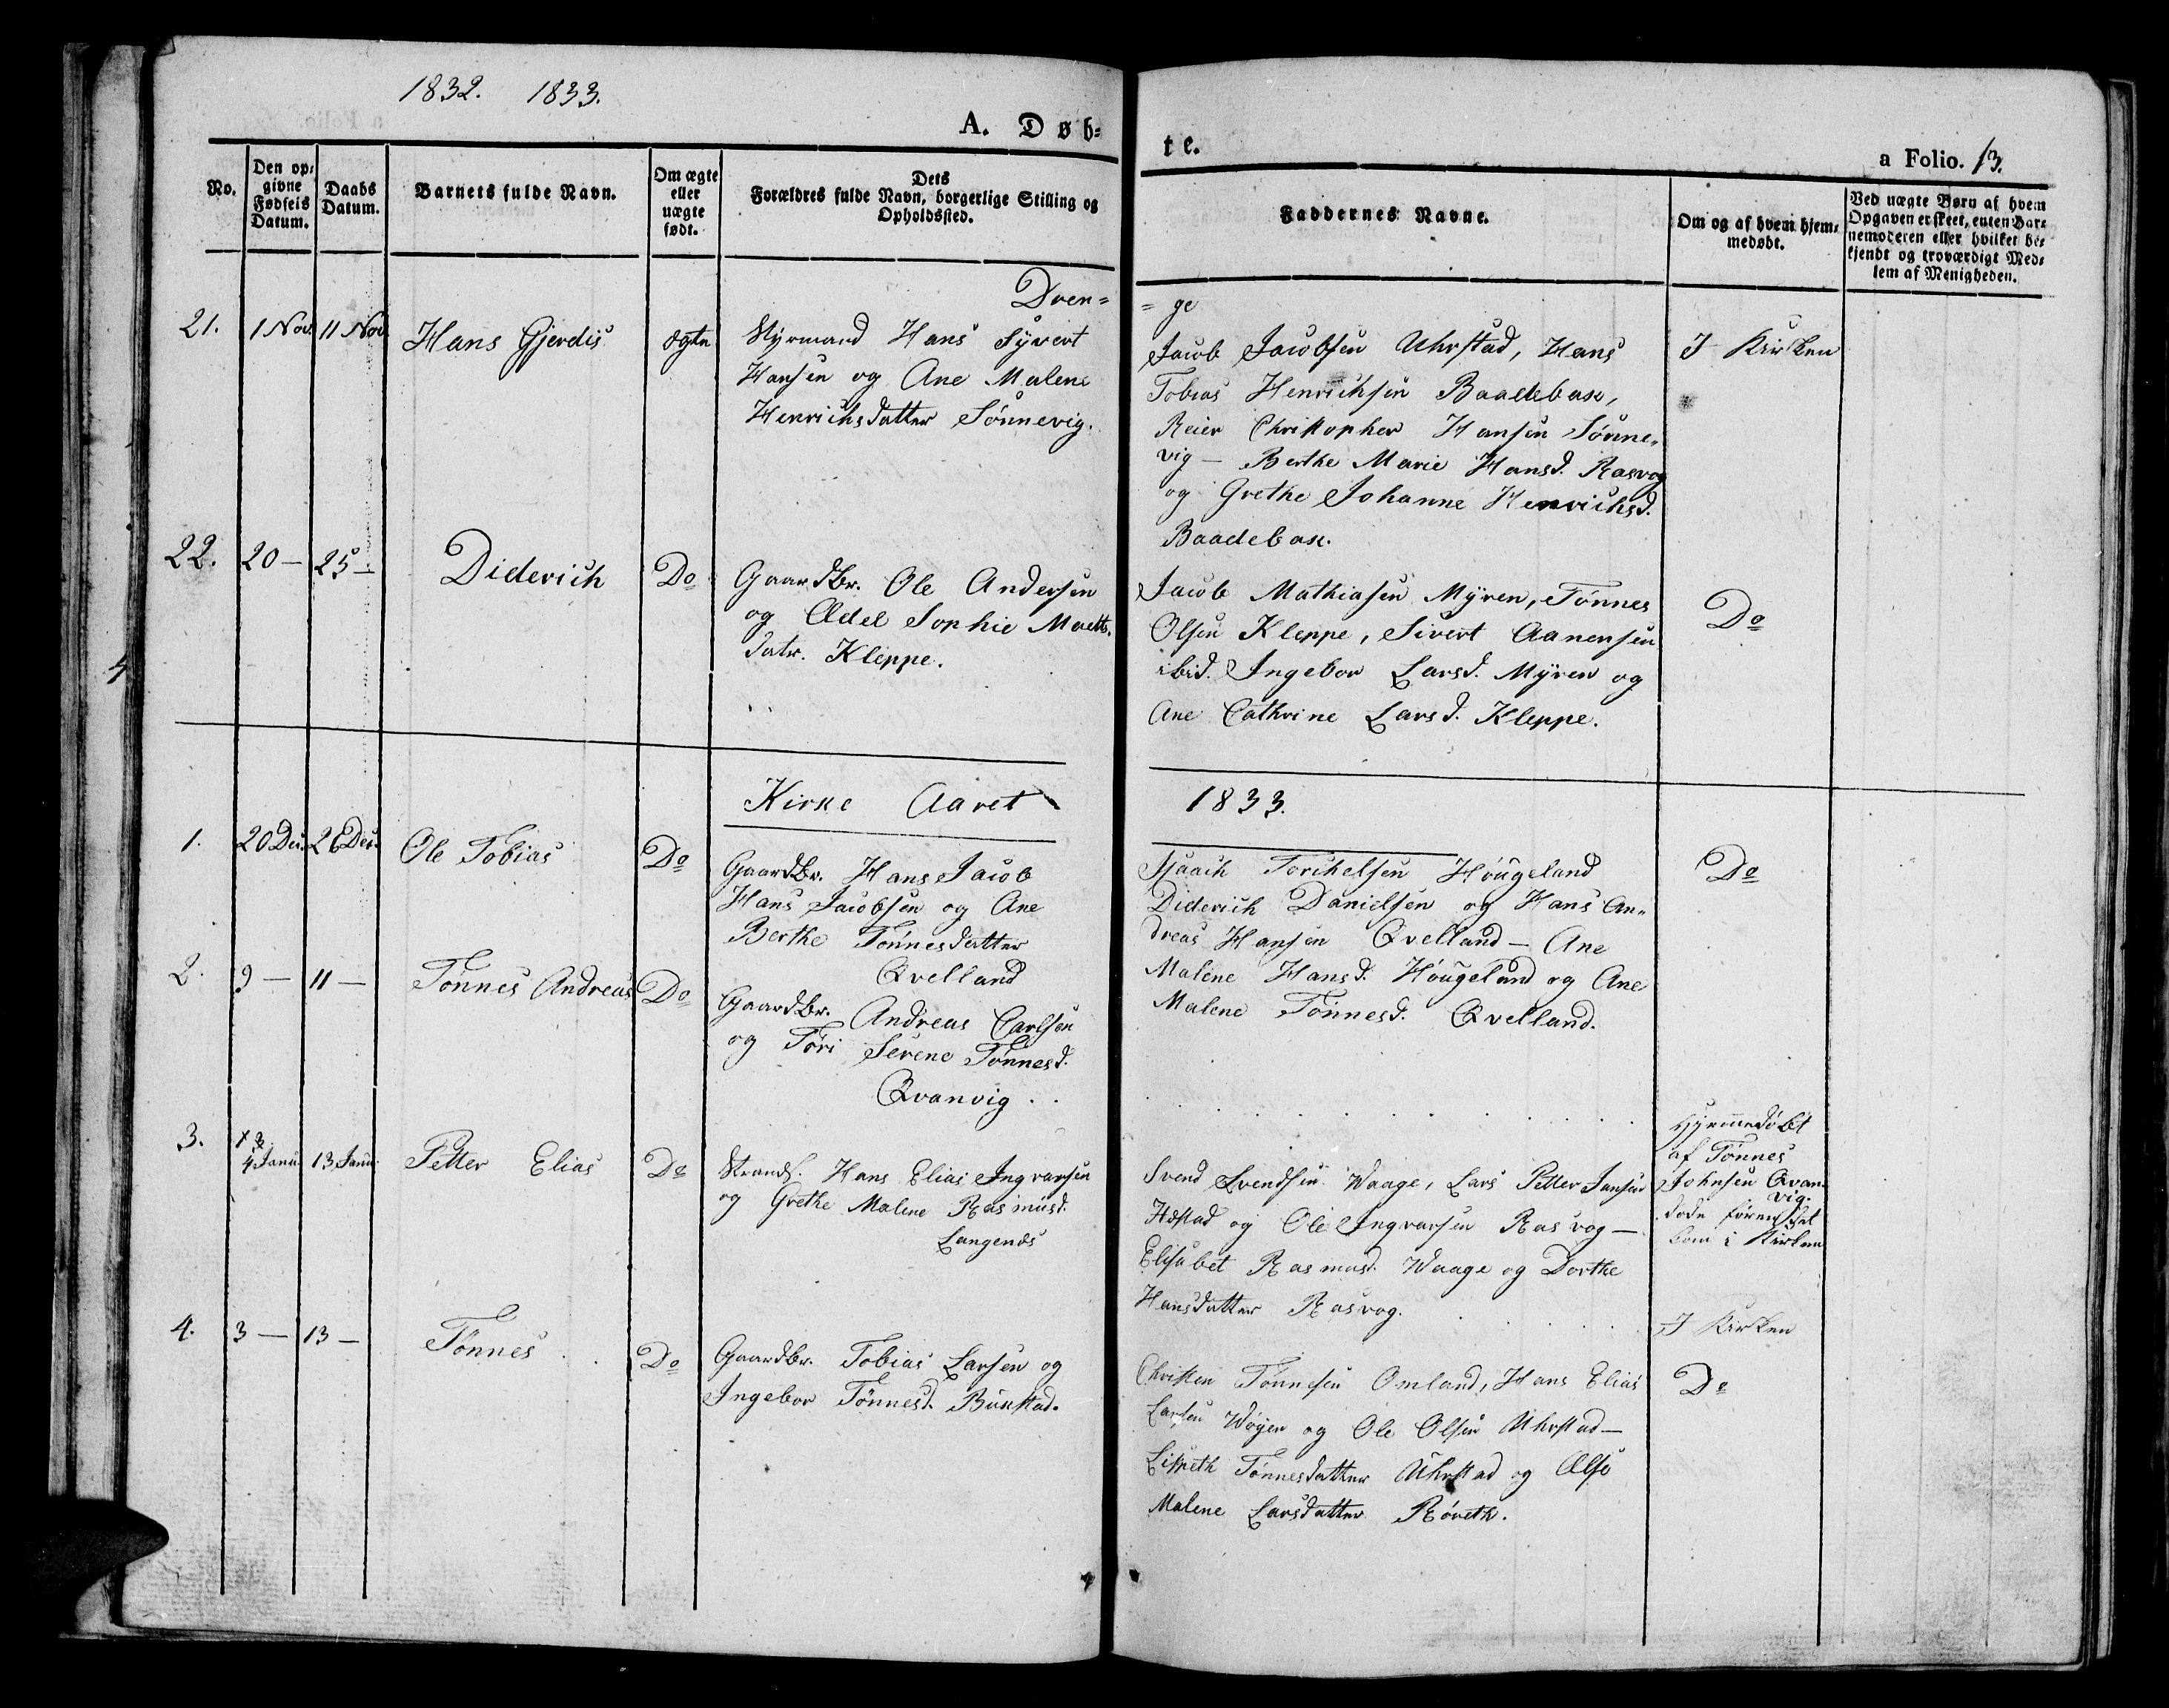 1832. 1833.
A. Døb-
te.
a Folio. 13.
No.
Den op-
givne
Fødsels
Datum.
Daabs
Datum.
Barnets fulde Navn.
Om ægte
eller
uægte
født.
Dets
Forældres fulde Navn, borgerlige Stilling og
Opholdssted.
Faddernes Navne.
Om og af hvem hjem-
medøbt.
Ved uægte Børn af hvem
Opgaven er skeet, enten Bar-
nemoderen eller hvilket be-
kjendt og troværdigt Med-
lem af Menigheden.
Dren-
-ge
21. 1 Nov. 11 Nov. Hans Gjerdis ægte
Styrmand Hans Syvert
Hansen og Ane Malene
Henrichsdatter Sønnevig.
Jacob Jacobsen Uhrstad, Hans
Tobias Henrichsen Baadebax,
Reier Christopher Hansen Sønne-
vig - Berthe Marie Hansd. Rasvog
og Grethe Johanne Henrichsd.
Baadebax.
I Kirken
22. 20 - 25 - Diderich Do
Gaardbr. Ole Andersen
og Ædel Sophie Matts.
datr. Kleppe.
Jacob Mathiasen Myren, Tønnes
Olsen Kleppe, Sivert Aanensen
ibid. Ingebor Larsd. Myren og
Ane Cathrine Larsd. Kleppe.
Do
Kirke Aaret 1833.
1. 20 Dec. 26 Dec. Ole Tobias Do
Gaardbr. Hans Jacob
Hans Jacobsen og Ane
Berthe Tønnesdatter
Qvelland
Isaach Torchelsen Høugeland
Diderich Danielsen og Hans An-
dreas Hansen Qvelland - Ane
Malene Hansd. Høugeland og Ane
Malene Tønnesd. Qvelland.
Do
2. 9 - 11 - Tønnes Andreas Do
Gaardbr. Andreas Carlsen
og Tøri Serene Tønnesd.
Qvanvig . .
Hjemmedøbt
af Tønnes
Johnsen Qvan-
vig.
døde førend det
kom i Kirken
3. 4 Janu. 13 Janu. Petter Elias Do
Strands. Hans Elias Ingvarsen
og Grethe Malene Rasmusd.
Langenes
Svend Svendsen Waage, Lars Petter Jansen
Hæstad og Ole Ingvarsen Rasvog -
Elisabet Rasmusd. Waage og Dorthe
Hansdatter Rasvog.
I Kirken
4. 3 - 13 - Tønnes . . Do
Gaardbr. Tobias Larsen og
Ingebor Tønnesd. Buxstad.
Christen Tønnesen Omland, Hans Elias
Larsen Wøyen og Ole Olsen Uhrstad -
Lisbeth Tønnesdatter Uhrstad og Else
Malene Larsdatter Røveth.
Do